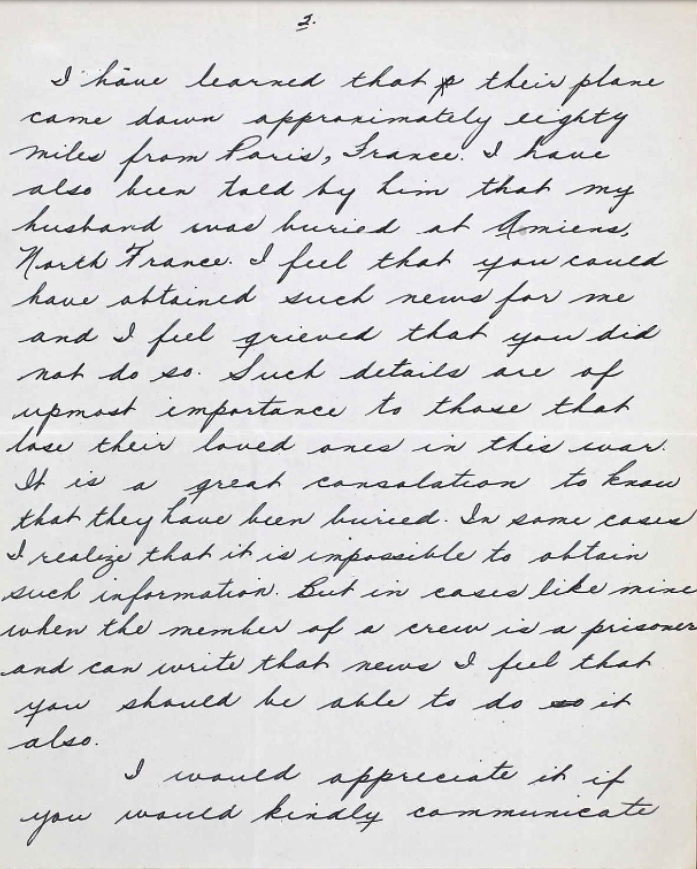 2.
I have learned that their plane
came down approximately eighty
miles from Paris, France. I have
also been told by him that my
husband was buried at Amiens,
North France. I feel that you could
have obtained such news for me
and I feel grieved that you did
not do so. Such details are of
upmost importance to those that
lose their loved ones in this war.
It is a great consolation to know
that they have been buried. In some cases
I realize that it is impossible to obtain
such information. But in cases like mine
when the member of a crew is a prisoner
and can write that news I feel that
you should be able to do so it
also.
I would appreciate it if
you would kindly communicate